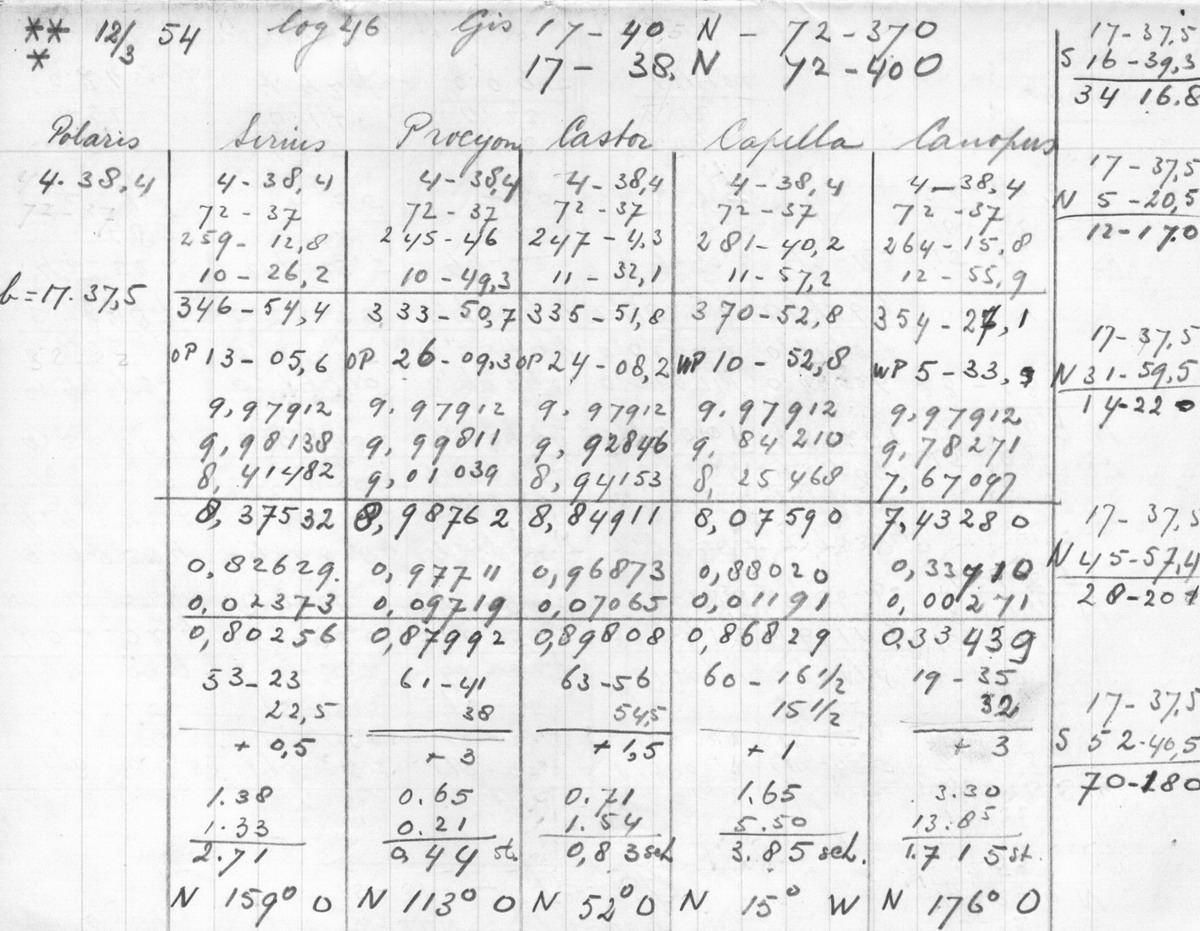 ** 12/3 54 log 46 Gis 17 - 40 N - 72 - 370
* 17 - 38. N 72 - 400
Polaris Sirius Procyon Castor Capella Canopus
4. 38,4 4 - 38,4 4 - 38,4 4 - 38,4 4 - 38,4 4 - 38,4
72 - 37 72 - 37 72 - 37 72 - 37 72 - 37
259 - 12,8 245 - 46 247 - 4.3 281 - 40,2 264 - 15,8
10 - 26,2 10 - 49,3 11 - 32,1 11 - 57,2 12 - 55,9
b = 17. 37,5 346 - 54,4 333 - 50,7 335 - 51,8 370 - 52,8 354 - 27,1
OP 13 - 05,6 OP 26 - 09,3 OP 24 - 08,2 WP 10 - 52,8 WP 5 - 33,9
9,97912 9.97912 9.97912 9.97912 9,97912
9,98138 9,99811 9,92846 9,84210 9,78271
8,41482 9,01039 8,94153 8,25468 7,67097
8,37532 8,98762 8,84911 8,07590 7,43280
0,82629. 0,97711 0,96873 0,88020 0,33710
0,02373 0,09719 0,07065 0,01191 0,00271
0,80256 0,87992 0,89808 0,86829 0.33439
53 - 23 61 - 41 63 - 56 60 - 16 1/2 19 - 35
22,5 38 54,5 15 1/2 32
+ 0,5 + 3 + 1,5 + 1 + 3
1.38 0.65 0.71 1.65 3.30
1.33 0.21 1.54 5.50 13.85
2.71 0,44 st. 0,83 sch 3.85 sch. 1.715 st.
N 159° O N 113° O N 52° O N 15° W N 176° O
17 - 37,5
S 16 - 39,3
34 16.8
17 - 37,5
N 5 - 20,5
12 - 17.0
17 - 37,5
N 31 - 59,5
14 - 22 0
17 - 37,5
N 45 - 57,4
28 - 20 1
17 - 37,5
S 52 - 40,5
70 - 180